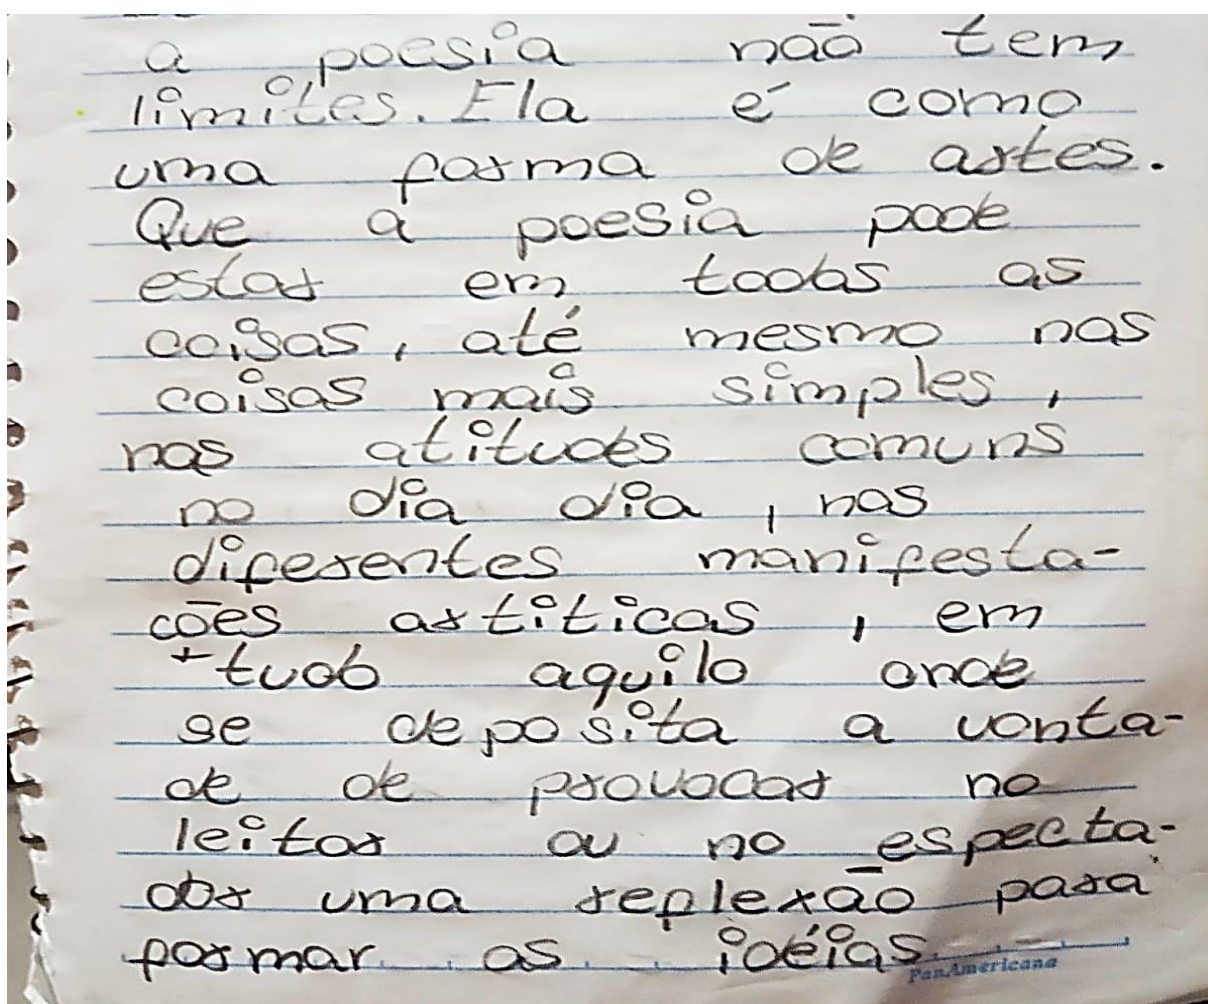 a poesia não tem
limites. Ela é como
uma forma de artes.
Que a poesia pode
estar em todas as
coisas, até mesmo nas
coisas mais simples,
nas atitudes comuns
no dia dia, nas
diferentes manifesta-
cões artiticas, em
tudo aquilo onde
se deposita a vonta-
de de provocar no
leitor ou no especta-
dor uma reflexão para
formar as idéias.
PanAmericana